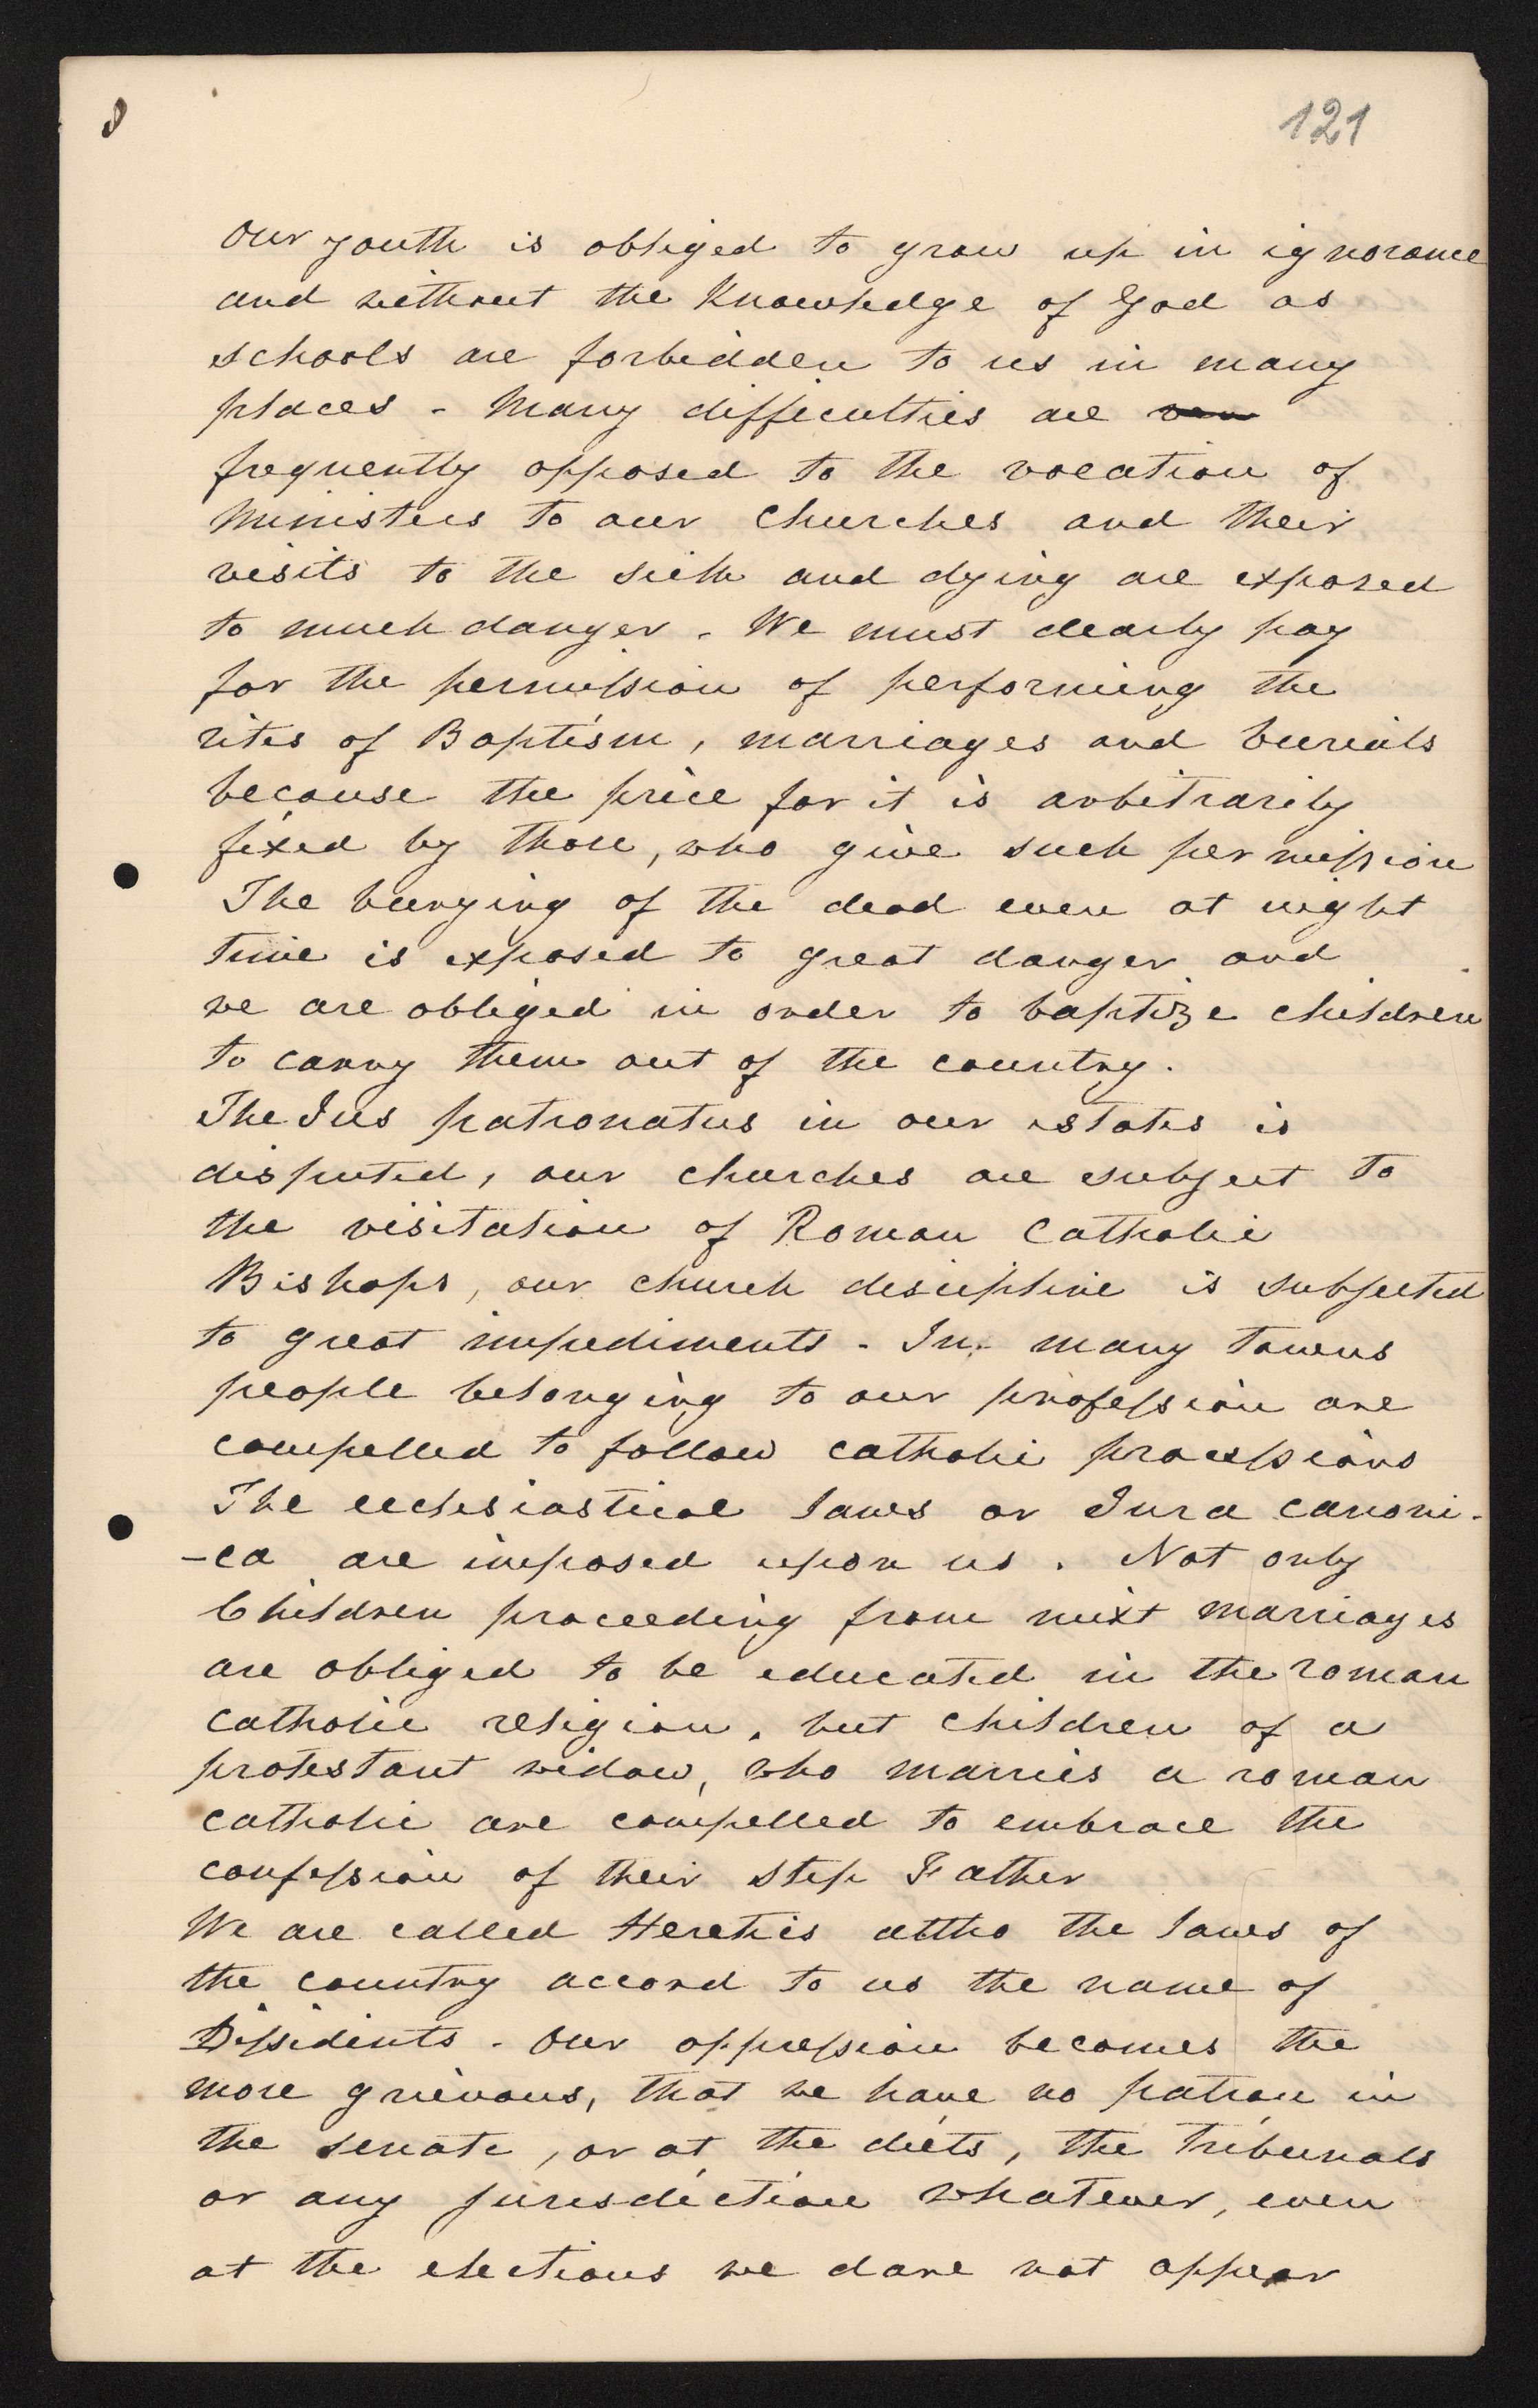 121
Our youth is obliged to grow up in ignorance
and without the Knowledge of God as
schools are forbidden to us in many
places - Many difficulties are
frequently opposed to the vocation of
Ministers to our Churches and their
visits to the sick and dying are exposed
to much danger. We must dearly pay
for the permission of performing the
rites of Baptism, marriages and burials
because the price for it is arbitrarily
fixed by those, who give such permission
The burying of the dead even at night
time is exposed to great danger and
we are obliged in order to baptize children
to carry them out of the country.
The Ius patronatus in our estates is
disputed, our churches are subject to
the visitation of Roman Catholic
Bishops, our church discipline is subjected
to great impediments - In many towns
people belonging to our profession are
compelled to follow catholic processions
The ecclesiastical laws or Iura canoni-
-ca are imposed upon us. Not only
Children proceeding from mixt marriages
are obliged to be educated in the roman
catholic religion, but children of a
protestant widow, who marries a roman
catholic are compelled to embrace the
confession of their step Father
We are called Heretics altho the laws of
the country accord to us the name of
Dissidents - Our oppression becomes the
more grievous, that we have no patron in
the senate, or at the diets, the Tribunals
or any jurisdiction whatever, even
at the elections we dare not appear